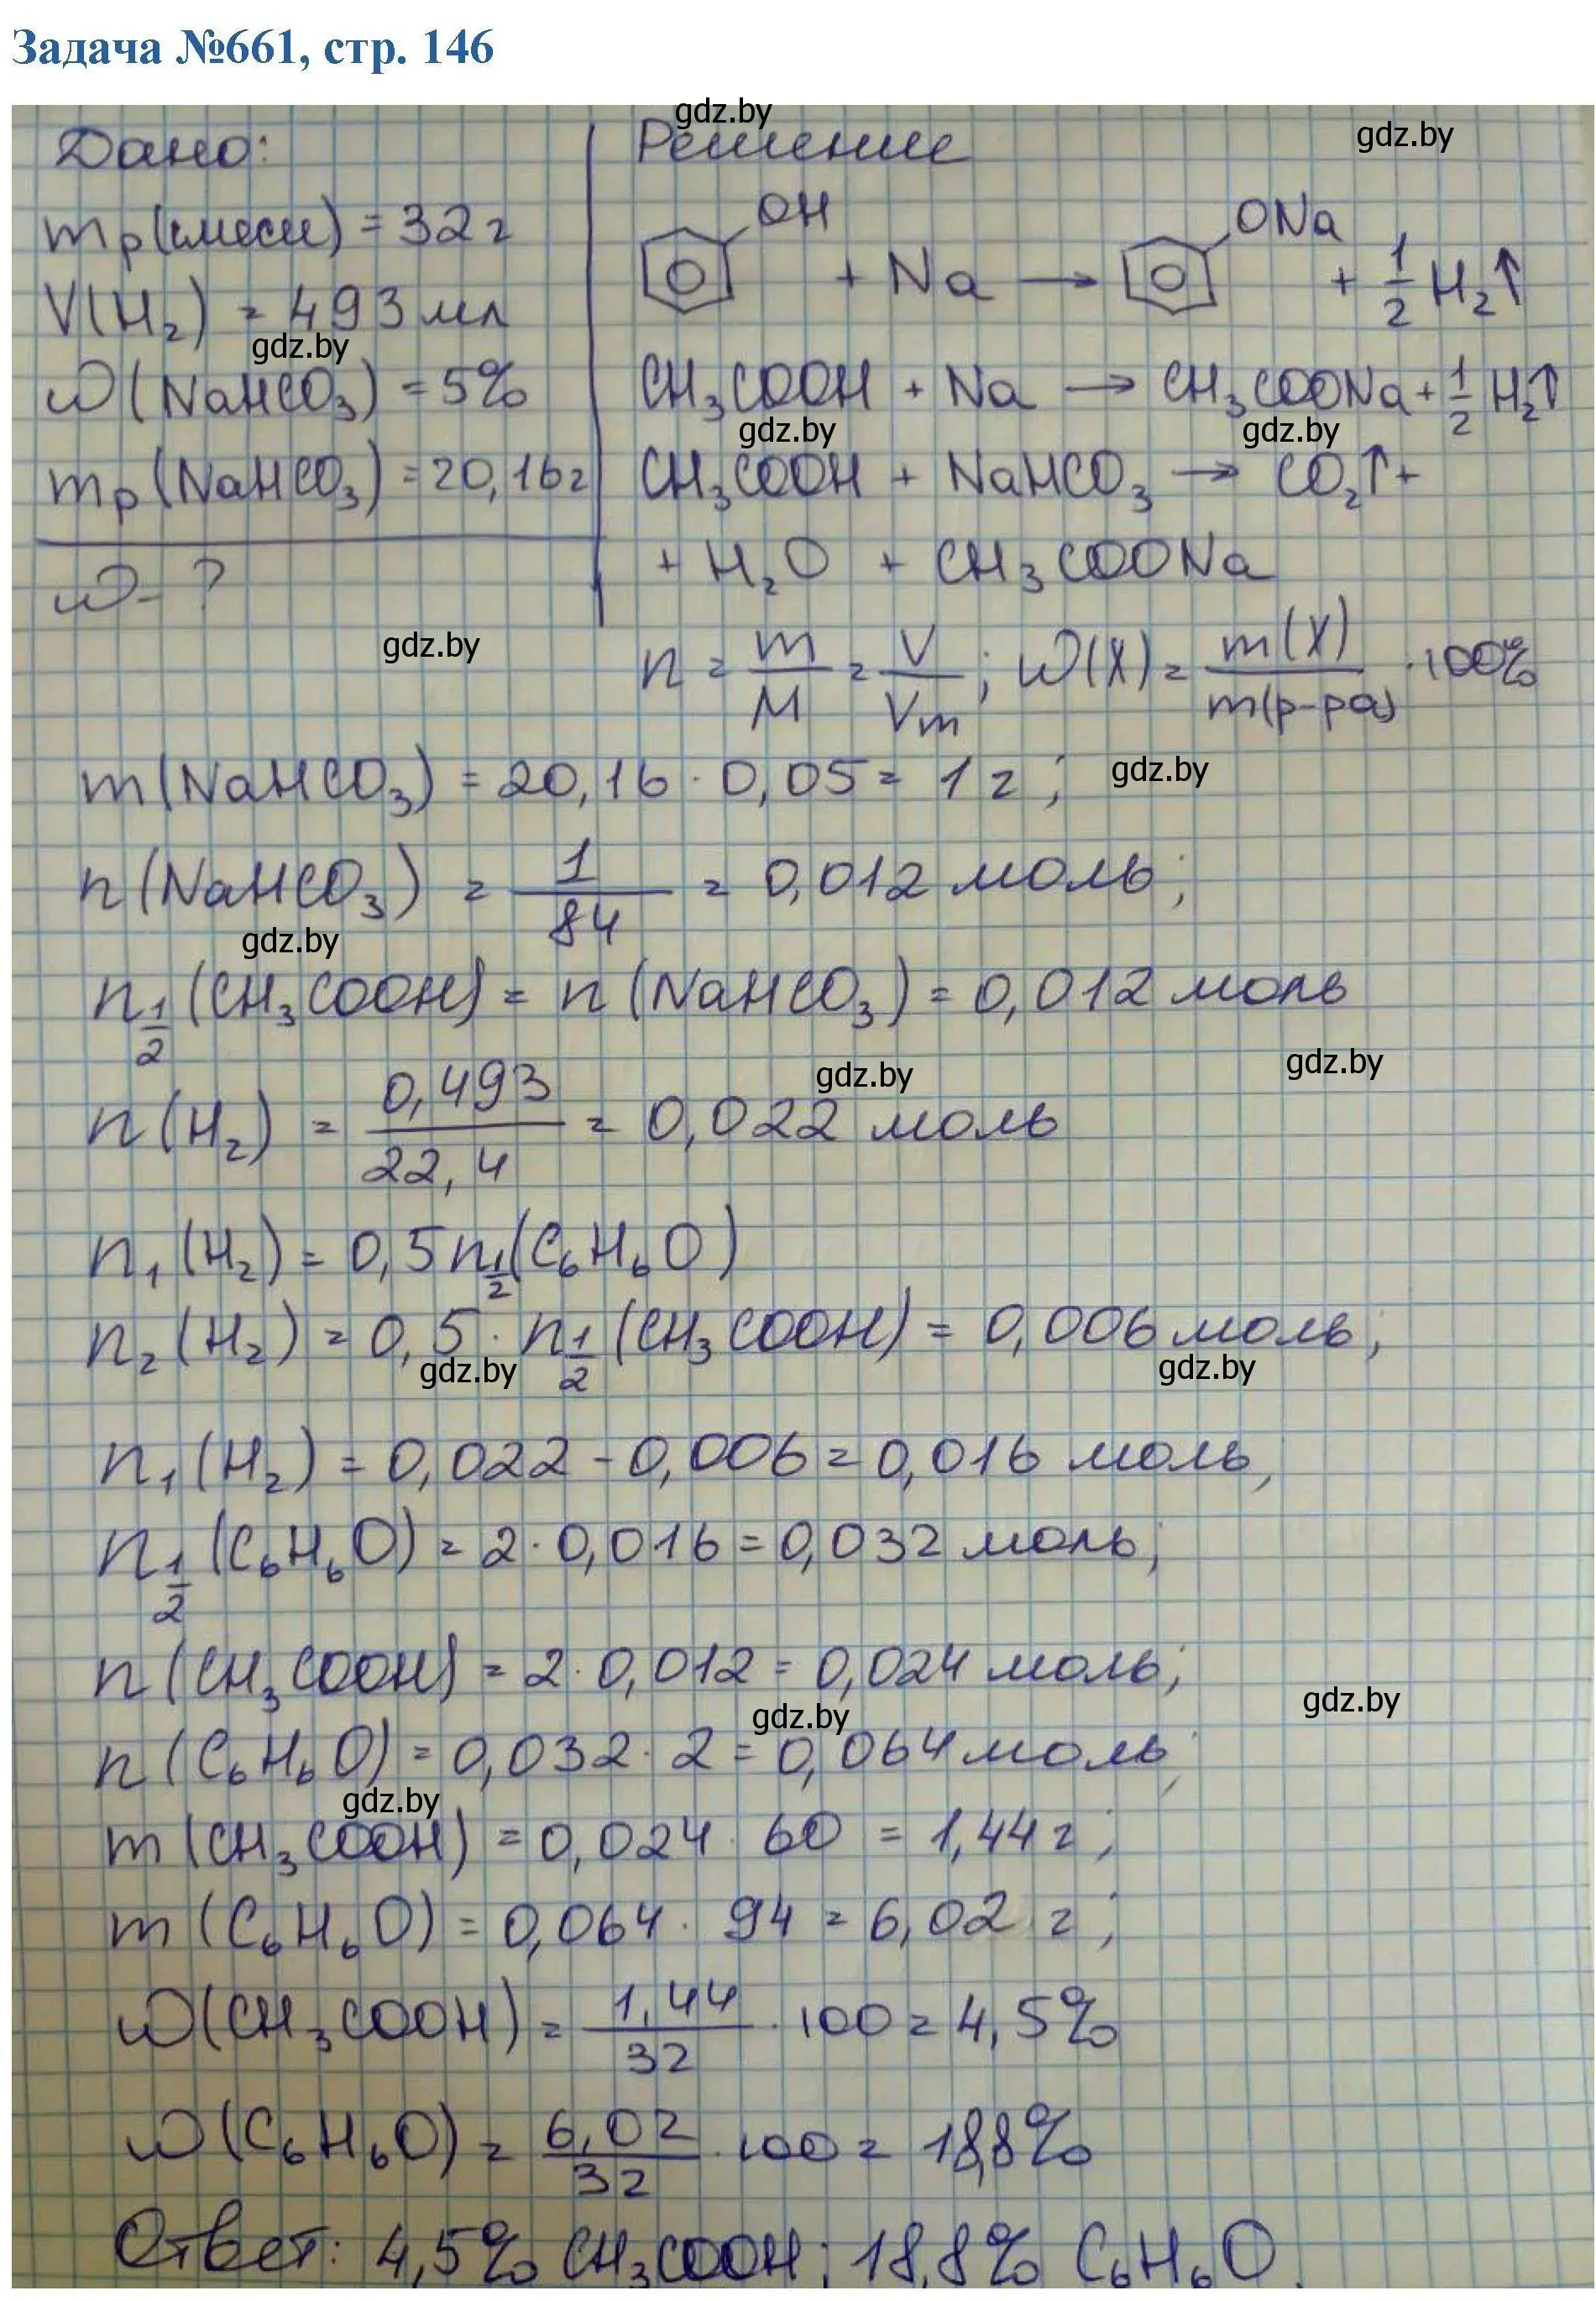 Задача №661, стр. 146
gdz.by
gdz.by
Дано:
Решение
mр(смеси) = 32 г
V(H₂) = 493 мл
gdz.by
ω(NaHCO₃) = 5%
mр(NaHCO₃) = 20,16 г
ω - ?
OH + Na → ONa + 1/2 H₂↑
CH₃COOH + Na → CH₃COONa + 1/2 H₂↑
gdz.by
gdz.by
CH₃COOH + NaHCO₃ → CO₂↑ +
+ H₂O + CH₃COONa
gdz.by
n = m/M = V/Vm; ω(X) = m(X)/m(р-ра) · 100%
m(NaHCO₃) = 20,16 · 0,05 = 1 г;
gdz.by
n(NaHCO₃) = 1/84 = 0,012 моль;
gdz.by
n1/2(CH₃COOH) = n(NaHCO₃) = 0,012 моль
gdz.by
gdz.by
n(H₂) = 0,493/22,4 = 0,022 моль
n₁(H₂) = 0,5n1/2(C₆H₆O)
n₂(H₂) = 0,5 · n1/2(CH₃COOH) = 0,006 моль;
gdz.by
gdz.by
n₁(H₂) = 0,022 - 0,006 = 0,016 моль,
n1/2(C₆H₆O) = 2 · 0,016 = 0,032 моль;
n(CH₃COOH) = 2 · 0,012 = 0,024 моль;
gdz.by
gdz.by
n(C₆H₆O) = 0,032 · 2 = 0,064 моль;
gdz.by
m(CH₃COOH) = 0,024 · 60 = 1,44 г;
m(C₆H₆O) = 0,064 · 94 = 6,02 г;
ω(CH₃COOH) = 1,44/32 · 100 = 4,5%
ω(C₆H₆O) = 6,02/32 · 100 = 18,8%
Ответ: 4,5% CH₃COOH; 18,8% C₆H₆O.